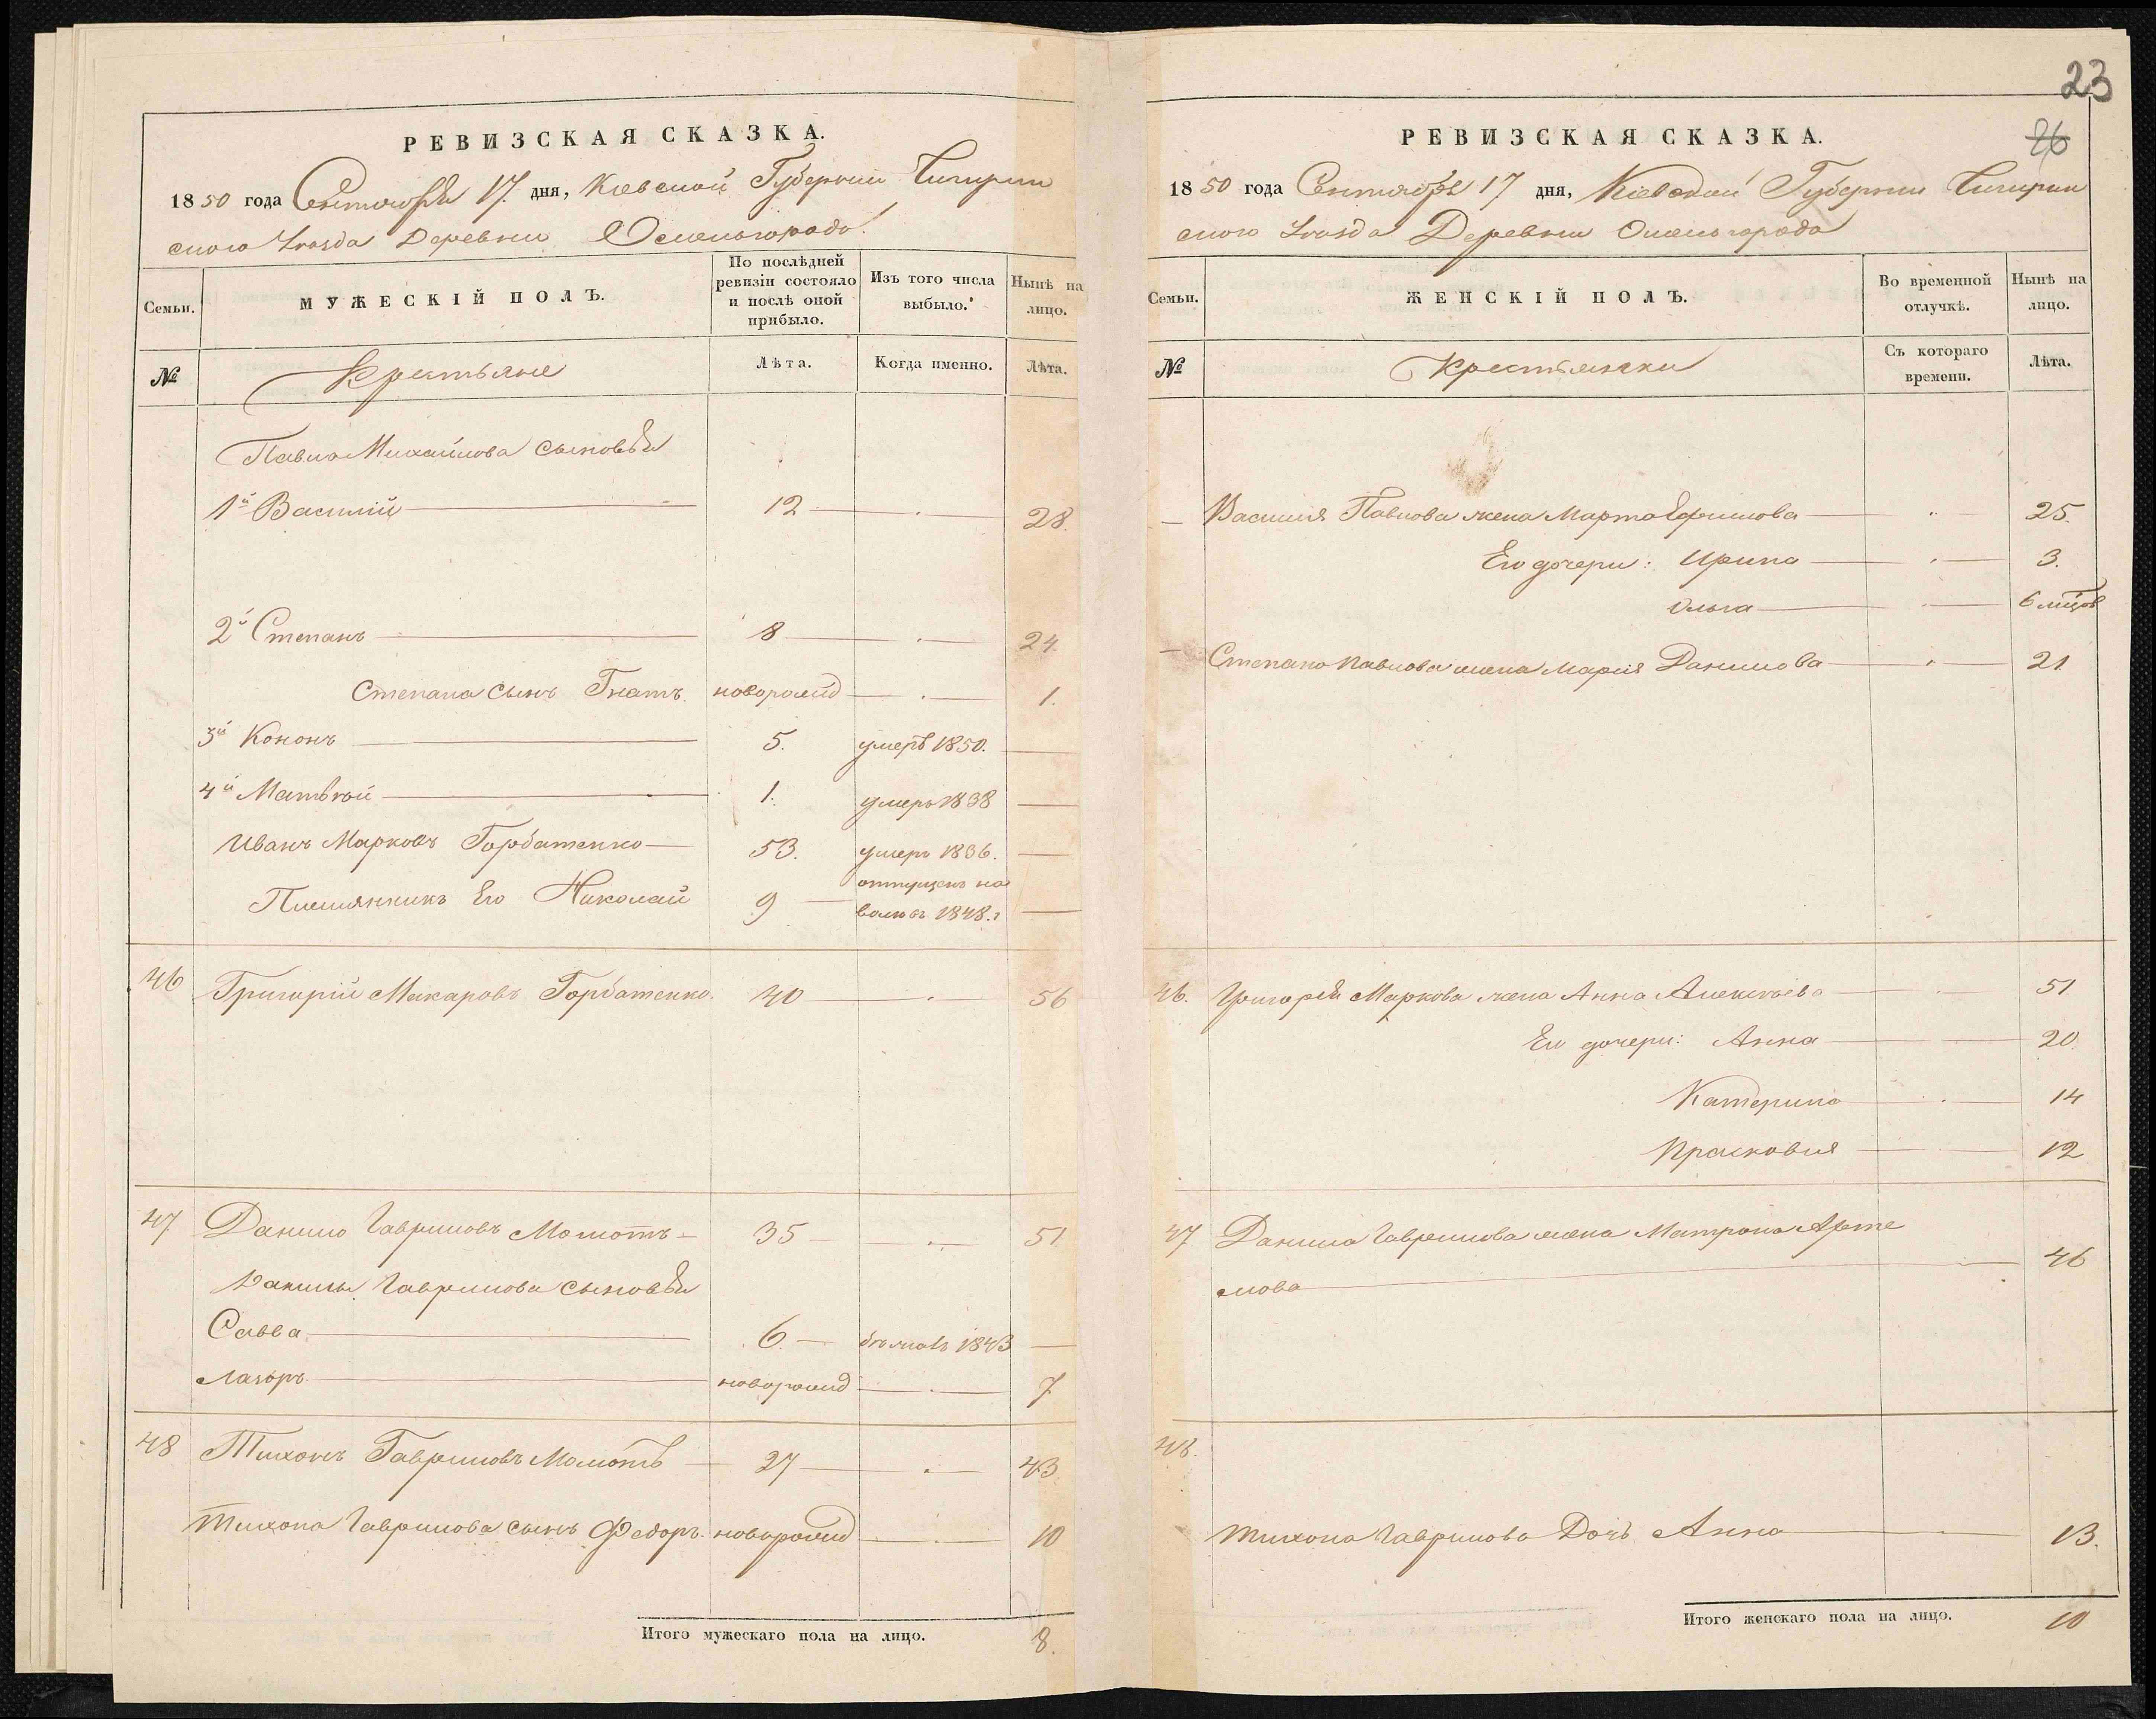 23
РЕВИЗСКАЯ СКАЗКА.
26
1850 года Сентября 17. дня, Кіевской Губерніи Чигирин
скаго Уѣзда Деревни Осмельгорода.
Семьи.
МУЖЕСКІЙ ПОЛЪ.
По послѣдней
ревизіи состояло
и послѣ оной
прибыло.
Изъ того числа
выбыло.
Нынѣ на
лицо.
№
Крестьяне
Лѣта.
Когда именно.
Лѣта.
Павла Михайлова сыновья
1й Василій 12 28.
2й Степанъ 8 24
Степана сынъ Гнатъ новорожд 1.
3й Кононъ 5. умеръ 1850.
4й Матвѣй 1. умеръ 1838
Иванъ Марковъ Горбатенко 53. умеръ 1836.
Племянникъ Его Николай 9 отпущенъ на
волю въ 1848.г
46 Григорій Макаровъ Горбатенко. 40 56
47 Данило Гавриловъ Момотъ 35 51
Данилы Гаврилова сыновья
Савва 6. бѣжалъ 1843
Лазоръ новорожд 7
48 Тихонъ Гавриловъ Момотъ 27 43
Тихона Гаврилова сынъ Федоръ. новорожд 10
Итого мужескаго пола на лицо. 8.
РЕВИЗСКАЯ СКАЗКА.
1850 года Сентября 17 дня, Кіевской Губерніи Чигирин
скаго Уѣзда Деревни
Семьи.
ЖЕНСКІЙ ПОЛЪ.
Во временной
отлучкѣ.
Нынѣ на
лицо.
№
Крестьянки
Съ котораго
времени.
Лѣта.
Василія Павлова жена Марта Ефимова 25.
Его дочери: Ирина 3.
Ольга 6 мцов
Степана Павлова жена Марія Данилова 21
46. Григорія Маркова жена Анна Алексѣева 51
Ея дочери: Анна 20.
Катерина 14
Прасковія 12
47 Данила Гаврилова жена Матрона Арте
мова 46
48.
Тихона Гаврилова Дочь Анна 13.
Итого женскаго пола на лицо. 10